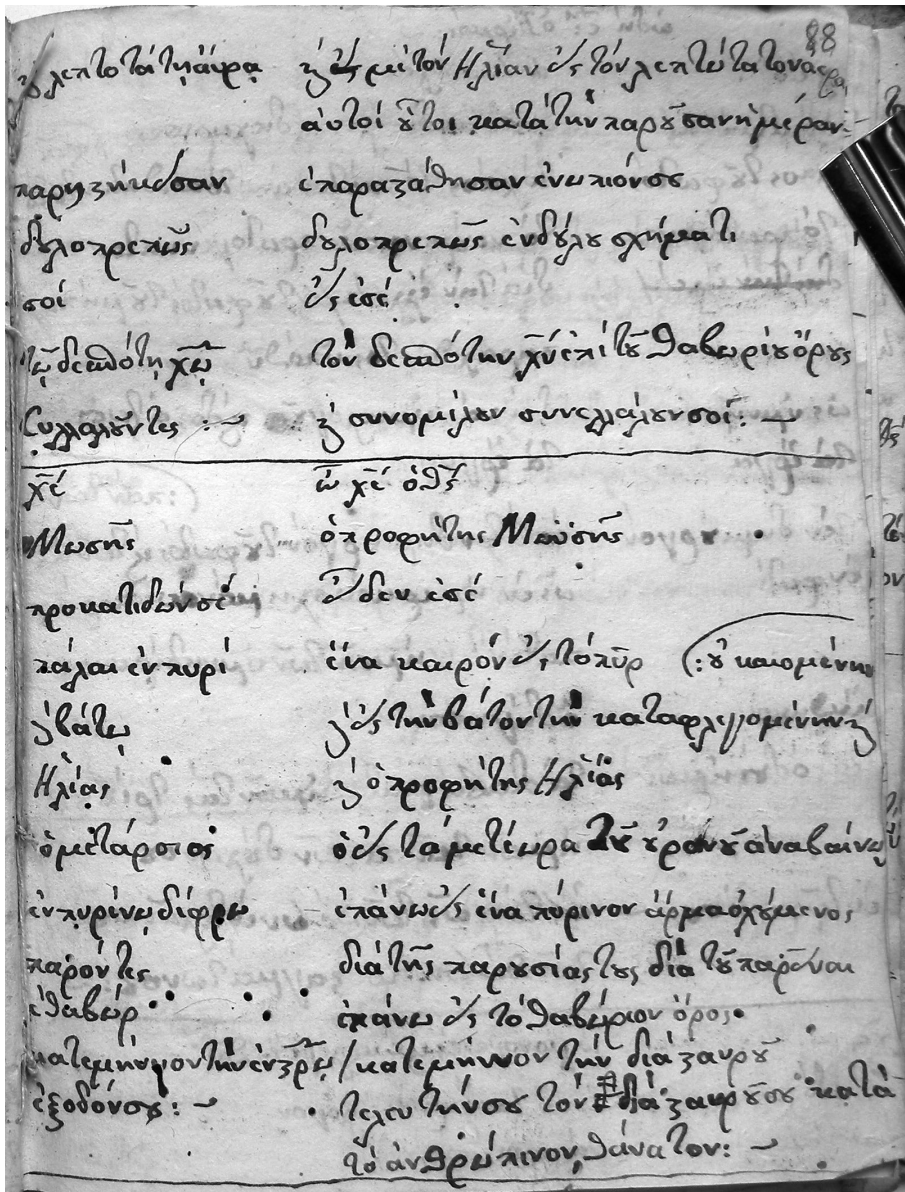 88
λεπτοτάτῃ αὔρᾳ ϗ εἰς μὲ τὸν Ἡλίαν εἰς τὸν λεπτώτατον ἀέρα
αὐτοὶ οὗτοι κατὰ τὴν παροῦσαν ἡμέραν
παρειστήκεσαν ἐπαραστάθησαν ἐνωπιόνσου
δουλοπρεπῶς δουλοπρεπῶς ἐν δούλου σχήματι
σοί εἰς ἐσέ
τῷ δεσπότῃ χῷ τὸν δεσπότην χν ἐπὶ τοῦ θαβωρίου ὄρους
Συλλαλοῦντες :~ ϗ συνομίλουν συνελλάλουν σοί: ~
χέ ὦ χέ ὁ θς
Μωσῆς ὁ προφήτης Μωϋσῆς
προκατιδών σέ εἶδεν ἐσέ
πάλαι ἐν πυρί ἕνα καιρόν εἰς τὸ πῦρ (: οὐ καιομένην
ϗ βάτῳ ϗ εἰς τὴν βάτον τὴν καταφλεγομένην ϗ
Ἡλίας ϗ ὁ προφήτης Ἡλίας
ὁ μετάρσιος ὁ εἰς τὰ μετέωρα τοῦ οὐρανοῦ ἀναβαίνων
ἐν πυρίνῳ δίφρῳ ἐπάνω εἰς ἕνα πύρινον ἅρμα ὀχούμενος
παρόντες διὰ τῆς παρουσίας τους διὰ τοῦ παρεῖναι
θαβώρ ἐπάνω εἰς τὸ θαβώριον ὄρος
κατεμήνυον τὴν ἐν στρῷ / κατεμήνυον τὴν διὰ σταυροῦ
ἐξοδόνσου: ~ τελευτήνσου τὸν διὰ σταυροῦ σου κατὰ
τὸ ἀνθρώπινον θάνατον: ~